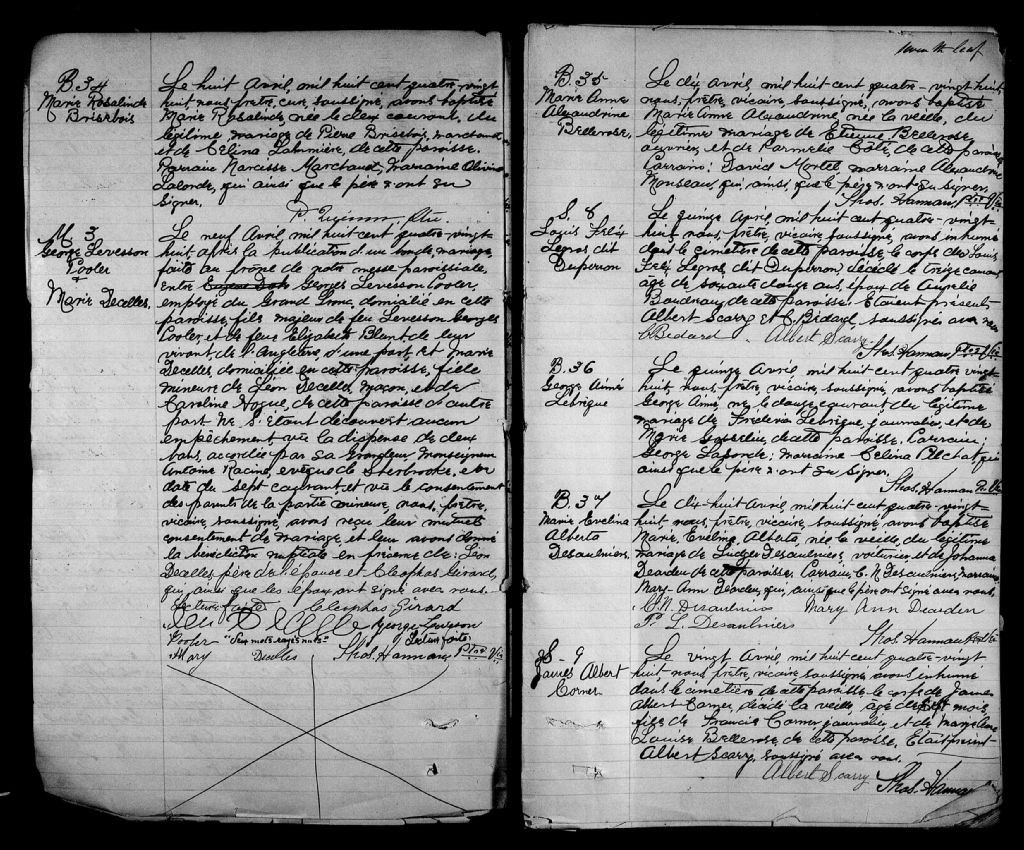 B. 34
Marie Rosalinde
Brisebois
Le huit Avril, mil huit cent quatre-vingt
huit nous, prêtre, curé, soussigné, avons baptisé
Marie Rosalinde, née le deux courant, du
légitime mariage de Pierre Brisebois, marchand
et de Celina de cette paroisse.
Parrain Narcisse Marchand, Marraine
Lalonde, qui ainsi que le père n'ont su
signer.
M 3
George Levesson
Cooler
+
Marie Decelles.
Le neuf Avril mil huit cent quatre-vingt
huit après la publication d'un ban de mariage,
faite au prône de notre messe paroissiale,
entre Georges Levesson Cooler,
employé du Grand Tronc, domicilié en cette
paroisse, fils majeur de feu Levesson Georges
Cooler et de feue Elizabeth Blant de leur
vivant de l'Angleterre, d'une part et Marie
Decelles domiciliée en cette paroisse, fille
mineure de Léon Decelles, Maçon, et de
Caroline Hogue, de cette paroisse d'autre
part ne s'étant découvert aucun
empêchement vu la dispense de deux
bans, accordée par sa Grandeur Monseigneur
Antoine Racine, évêque de Sherbrooke, en
date du sept courant, et vu le consentement
des parents de la partie mineure, nous, prêtre,
vicaire, soussigné, avons reçu leur mutuel
consentement de mariage, et leur avons donné
la bénédiction nuptiale en présence de: Léon
Decelles père de l'épouse et Cleophas Girard,
qui, ainsi que les époux, ont signé avec nous.
Lecture faite Cleophas Girard
George Levesson
Cooper mots rayés nuls" Lecture faite
Mary Decelles Thos. Hannan, Ptre Vic
B. 35
Marie Anne
Alexandrine
Bellerose,
Le dix Avril, mil huit cent quatre-vingt huit
nous, prêtre, vicaire, soussigné, avons baptisé
Marie Anne Alexandrine, née la veille, du
légitime mariage de Etienne Bellerose,
ouvrier, et de Parmelie Côté, de cette paroisse
Parrain: David Mortel marraine Alexandrine
Mousseau, qui, ainsi, que le père n'ont su signer.
Thos. Hannan, Ptre Vic
S. 8
Louis Félix
Legros dit
Duperron
Le quinze Avril, mil huit cent quatre-vingt
huit, nous, prêtre, vicaire soussigné, avons inhumé
dans le cimetière de cette paroisse le corps de Louis
Félix Legros, dit Duperron, décédé le treize courant
âgé de soixante douze ans, époux de Aurélie
Boudreau, de cette paroisse. Etaient présents
Albert Scarry et C. Bédard, soussignés avec nous
C Bedard Albert Scarry
Thos. Hannan, Ptre Vic
B. 36
George Aimé
Lebrèque
Le quinze Avril, mil huit cent quatre vingt
huit, nous, prêtre, vicaire, soussigné, avons baptisé
George Aimé, né le douze courant du légitime
mariage de Fréderic Lebrèque, journalier, et de
Marie de cette paroisse. Parrain:
George Laponde; marraine Celina Pelchat, qui
ainsi que le père n'ont su signer.
Thos. Hannan P. Vic
B. 37
Marie Evelina
Alberta
Desaulniers,
Le dix-huit Avril, mil huit cent quatre-vingt-
huit, nous, prêtre, vicaire, soussigné, avons baptisé
Marie, Evelina, Alberta, née la veille du légitime
mariage de Ludger Desaulniers, voiturier et de Johanna
Dearden de cette paroisse. Parrain, C. N Desaulniers marraine
Mary-Ann Dearden, qui, ainsi que le père ont signé avec nous.
C. N. Desaulniers Mary Ann Dearden
P. L Desaulniers
Thos. Hannan Ptre Vic
S - 9
James Albert
Corner
Le vingt Avril, mil huit cent quatre-vingt
huit, nous, prêtre, vicaire, soussigné avons inhumé
dans le cimetière de cette paroisse le corps de James
Albert Corner, décédé la veille, âgé de sept mois,
fils de Francis Corner, journalier, et de Marie
Louise Bellerose, de cette paroisse. Etait présent
Albert Scarry, soussigné avec nous.
Albert Scarry
Thos. Hannan